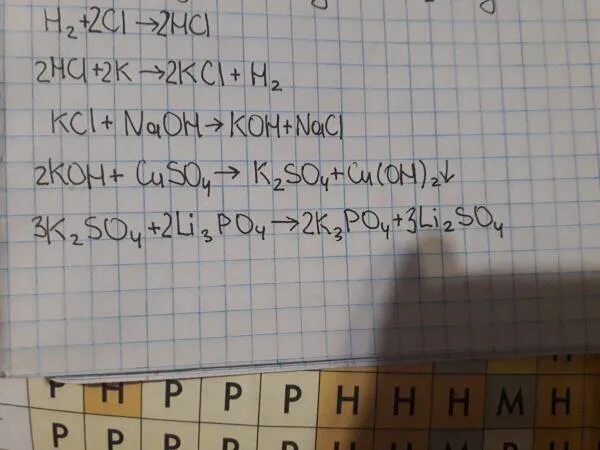 H₂+2Cl→2HCl
2HCl+2K→2KCl+H₂
KCl+NaOH→KOH+NaCl
2KOH+CuSO₄→K₂SO₄+Cu(OH)₂↓
3K₂SO₄+2Li₃PO₄→2K₃PO₄+3Li₂SO₄
Р Н Р Р Р Н Н Н М Н
Р Р Р Р Р